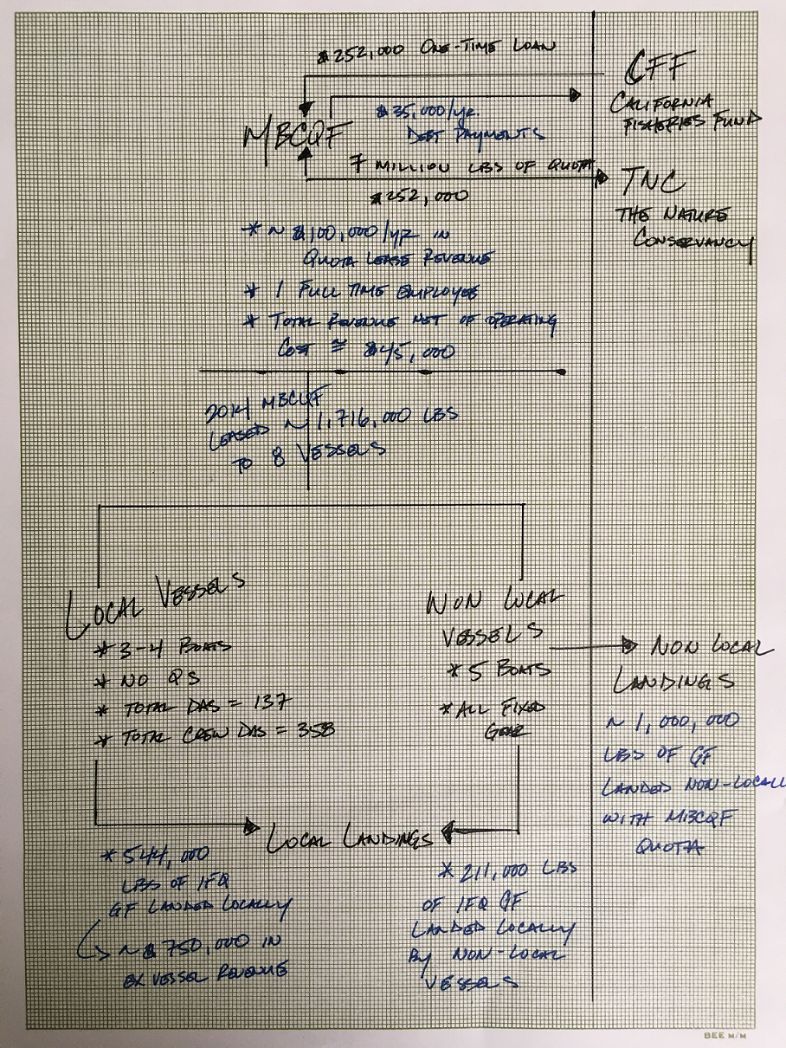 $252,000 ONE-TIME LOAN
CFF
CALIFORNIA
FISHERIES FUND
MBCQF
$35,000/yr.
DEBT PAYMENTS
7 MILLION LBS OF QUOTA
$252,000
TNC
THE NATURE
CONSERVANCY
* ~ $100,000/YR IN
QUOTA LEASE REVENUE
* 1 FULL TIME EMPLOYEE
* TOTAL REVENUE NET OF OPERATING
COST ≅ $45,000
2014 MBCQF
LEASED ~ 1,716,000 LBS
TO 8 VESSELS
LOCAL VESSELS
* 3-4 BOATS
* NO QS
* TOTAL DAS = 137
* TOTAL CREW DAS = 358
NON LOCAL
VESSELS
* 5 BOATS
* ALL FIXED
GEAR
NON LOCAL
LANDINGS
~ 1,000,000
LBS OF GF
LANDED NON-LOCALLY
WITH MBCQF
QUOTA
LOCAL LANDINGS
* 544,000
LBS OF IFQ
GF LANDED LOCALLY
~ $750,000 IN
EX VESSEL REVENUE
* 211,000 LBS
OF IFQ GF
LANDED LOCALLY
BY NON-LOCAL
VESSELS
BEE M/M